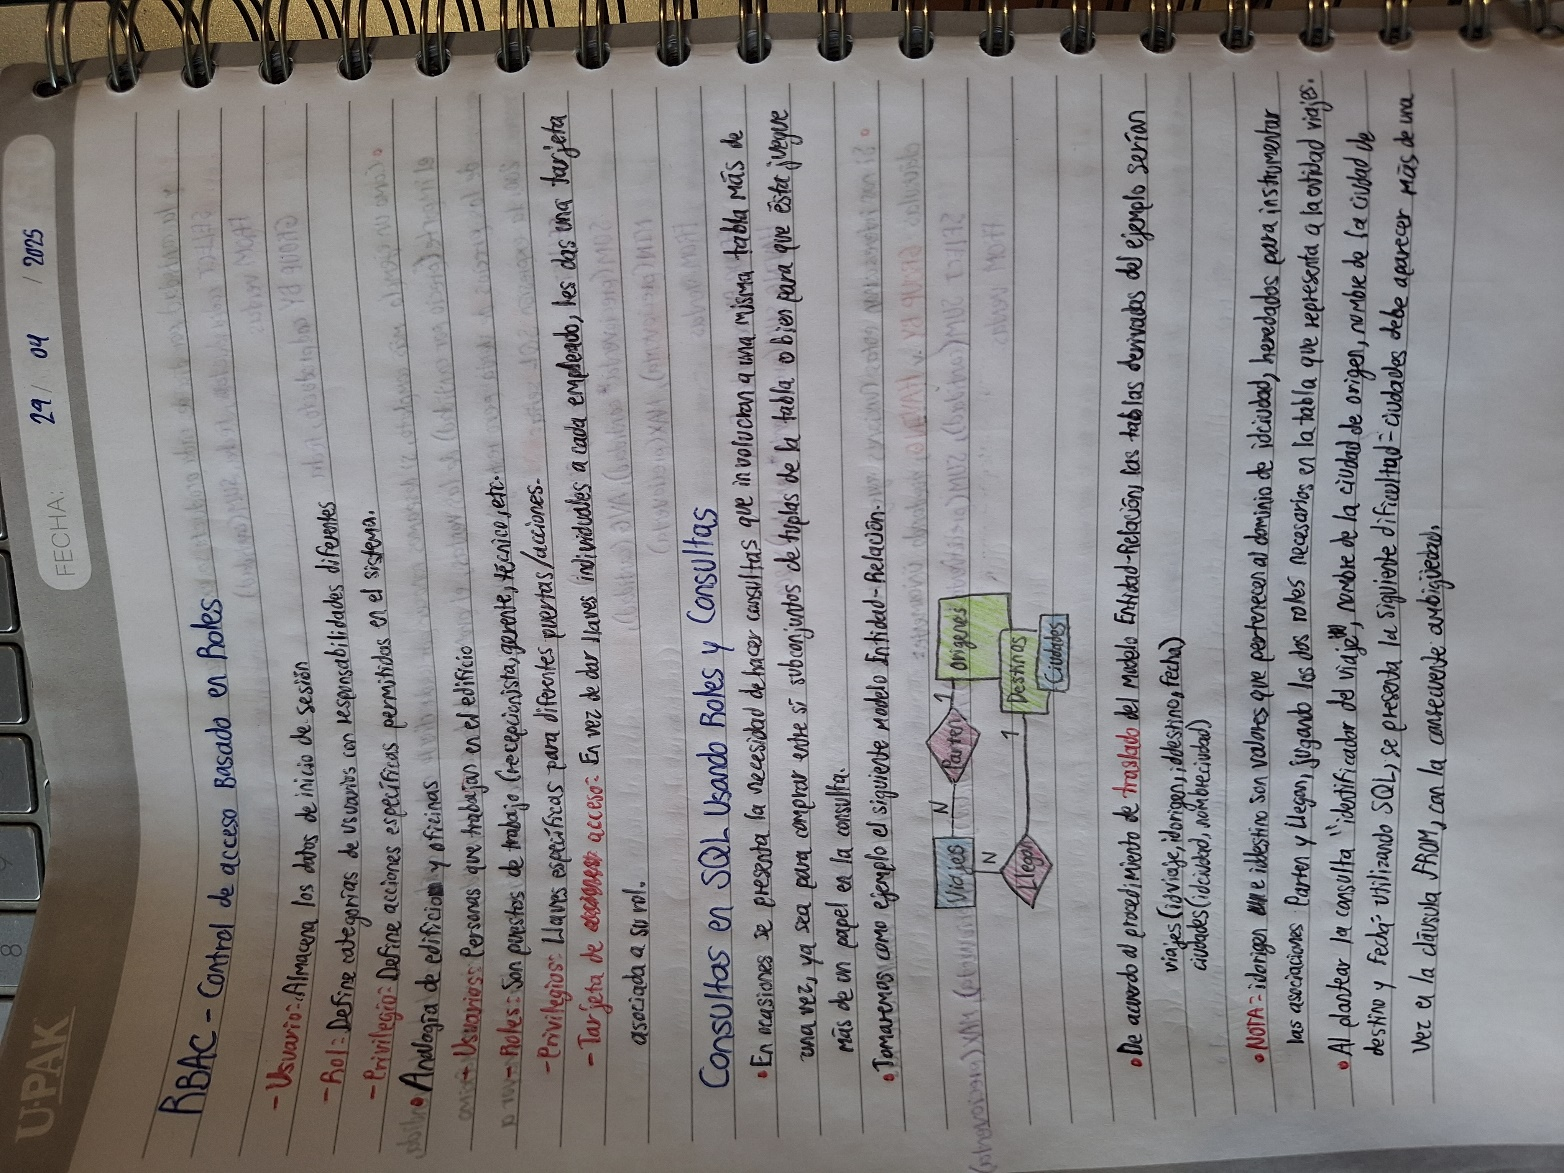 U-PAK
FECHA: 29 / 04 / 2025
RBAC - Control de acceso Basado en Roles
- Usuario: Almacena los datos de inicio de sesión
- Rol: Define categorías de usuarios con responsabilidades diferentes
- Privilegio: Define acciones específicas permitidas en el sistema.
• Analogía de edificio y oficinas
- Usuarios: Personas que trabajan en el edificio
- Roles: Son puestos de trabajo (recepcionista, gerente, técnico, etc.
- Privilegios: Llaves específicas para diferentes puertas/acciones.
- Tarjeta de acceso: En vez de dar llaves individuales a cada empleado, les das una tarjeta
asociada a su rol.
Consultas en SQL Usando Roles y Consultas
• En ocasiones se presenta la necesidad de hacer consultas que involucran a una misma tabla más de
una vez, ya sea para comprar entre sí subconjuntos de tuplas de la tabla o bien para que ésta juegue
más de un papel en la consulta.
• Tomaremos como ejemplo el siguiente modelo Entidad-Relación.
Viajes N Parten 1 Orígenes
N Llegan 1 Destinos
Ciudades
• De acuerdo al procedimiento de traslado del modelo Entidad-Relación, las tablas derivadas del ejemplo serían
viajes (idviaje, idorigen, idestino, fecha)
ciudades (idciudad, nombreciudad)
• NOTA = idorigen e idestino son valores que pertenecen al dominio de idciudad, heredados para instrumentar
las asociaciones Parten y Llegan, jugando los dos roles necesarios en la tabla que representa a la entidad viajes.
• Al plantear la consulta "identificador del viaje", nombre de la ciudad de origen, nombre de la ciudad de
destino y Fecha utilizando SQL, se presenta la siguiente dificultad = ciudades debe aparecer más de una
vez en la cláusula FROM, con la consecuente ambigüedad.